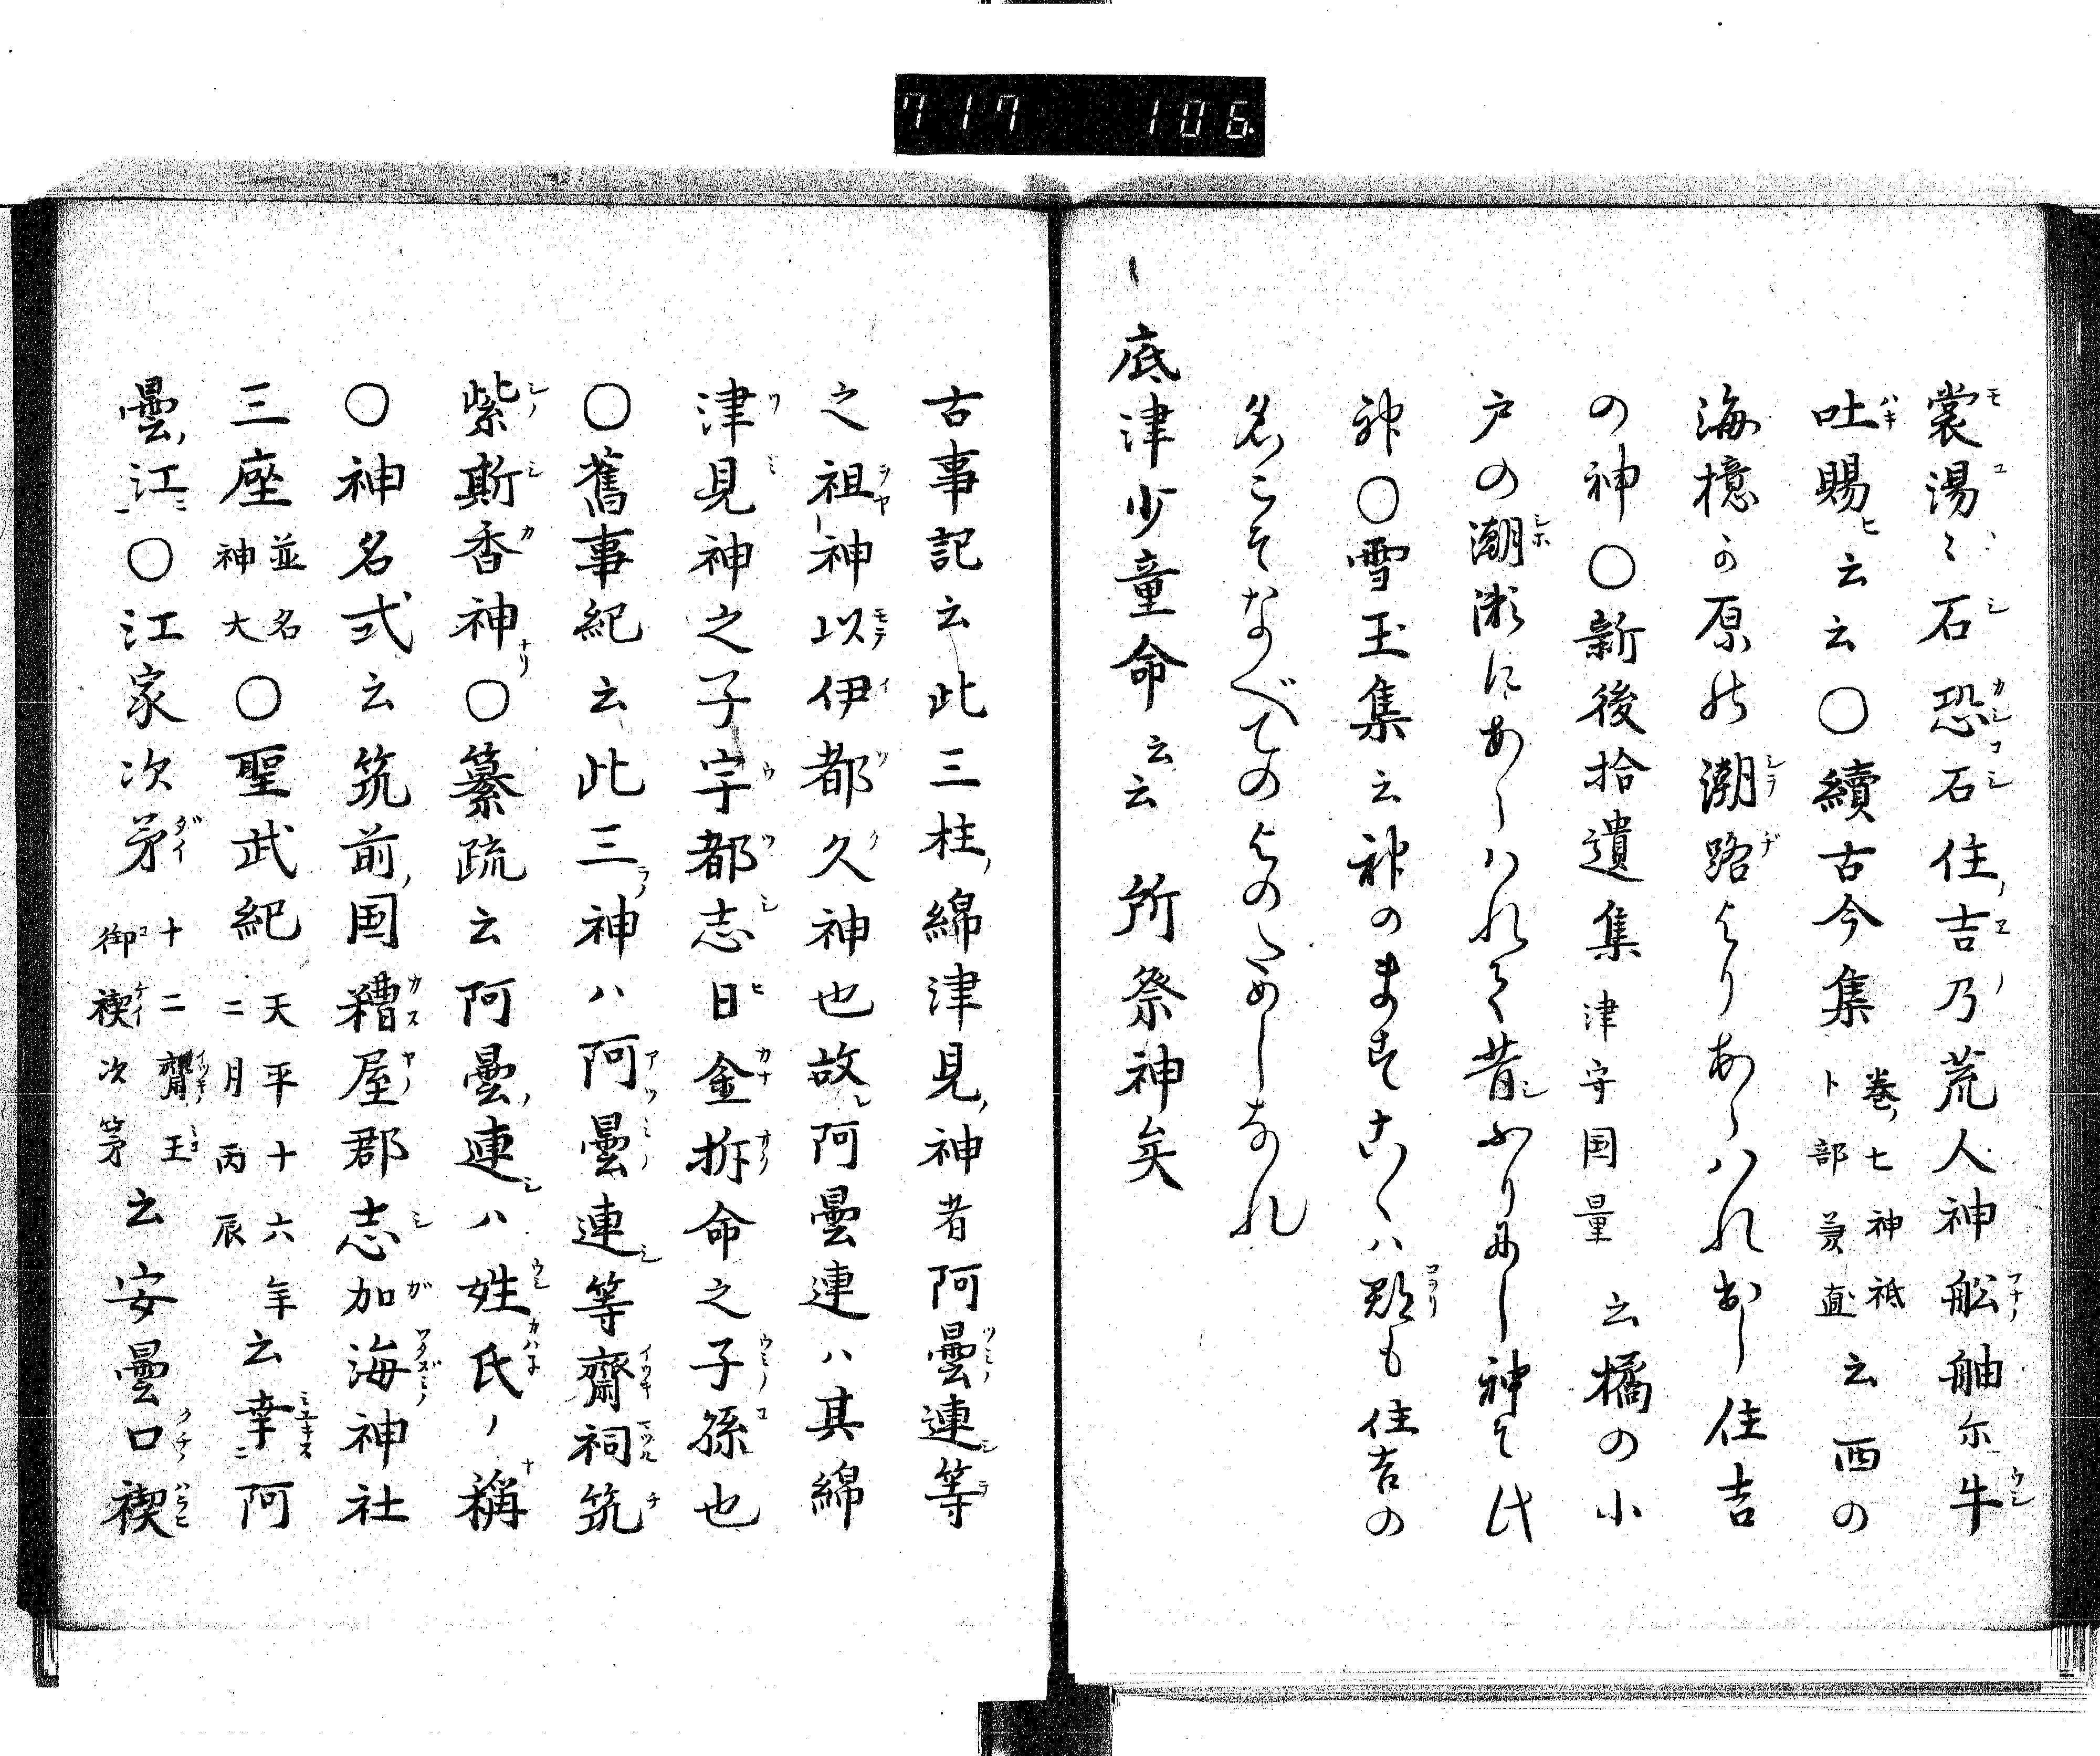 717 106
裳湯〻石恐石住吉乃荒人神舩舳尓牛
吐賜云云〇續古今集巻七神祇卜部兼直云西の
海檍の原の潮路よりあらハれ出し住吉
の神〇新後拾遺集津守国量云橘の小
戸の潮瀬にあらハれて昔ふりにし神そ此
神〇雪玉集云神のますこゝろハ郡も住吉の
名こそなべてのよのためしなれ
底津少童命云云所祭神矣
古事記云此三柱綿津見神者阿曇連等
之祖神以伊都久神也故阿曇連ハ其綿
津見神之子宇都志日金拆命之子孫也
〇舊事紀云此三神ハ阿曇連等齋祠筑
紫斯香神〇纂疏云阿曇連ハ姓氏ノ稱
〇神名式云筑前国糟屋郡志加海神社
三座並名神大〇聖武紀天平十六年二月丙辰云幸阿
曇江〇江家次第十二齋王御禊次第云安曇口禊